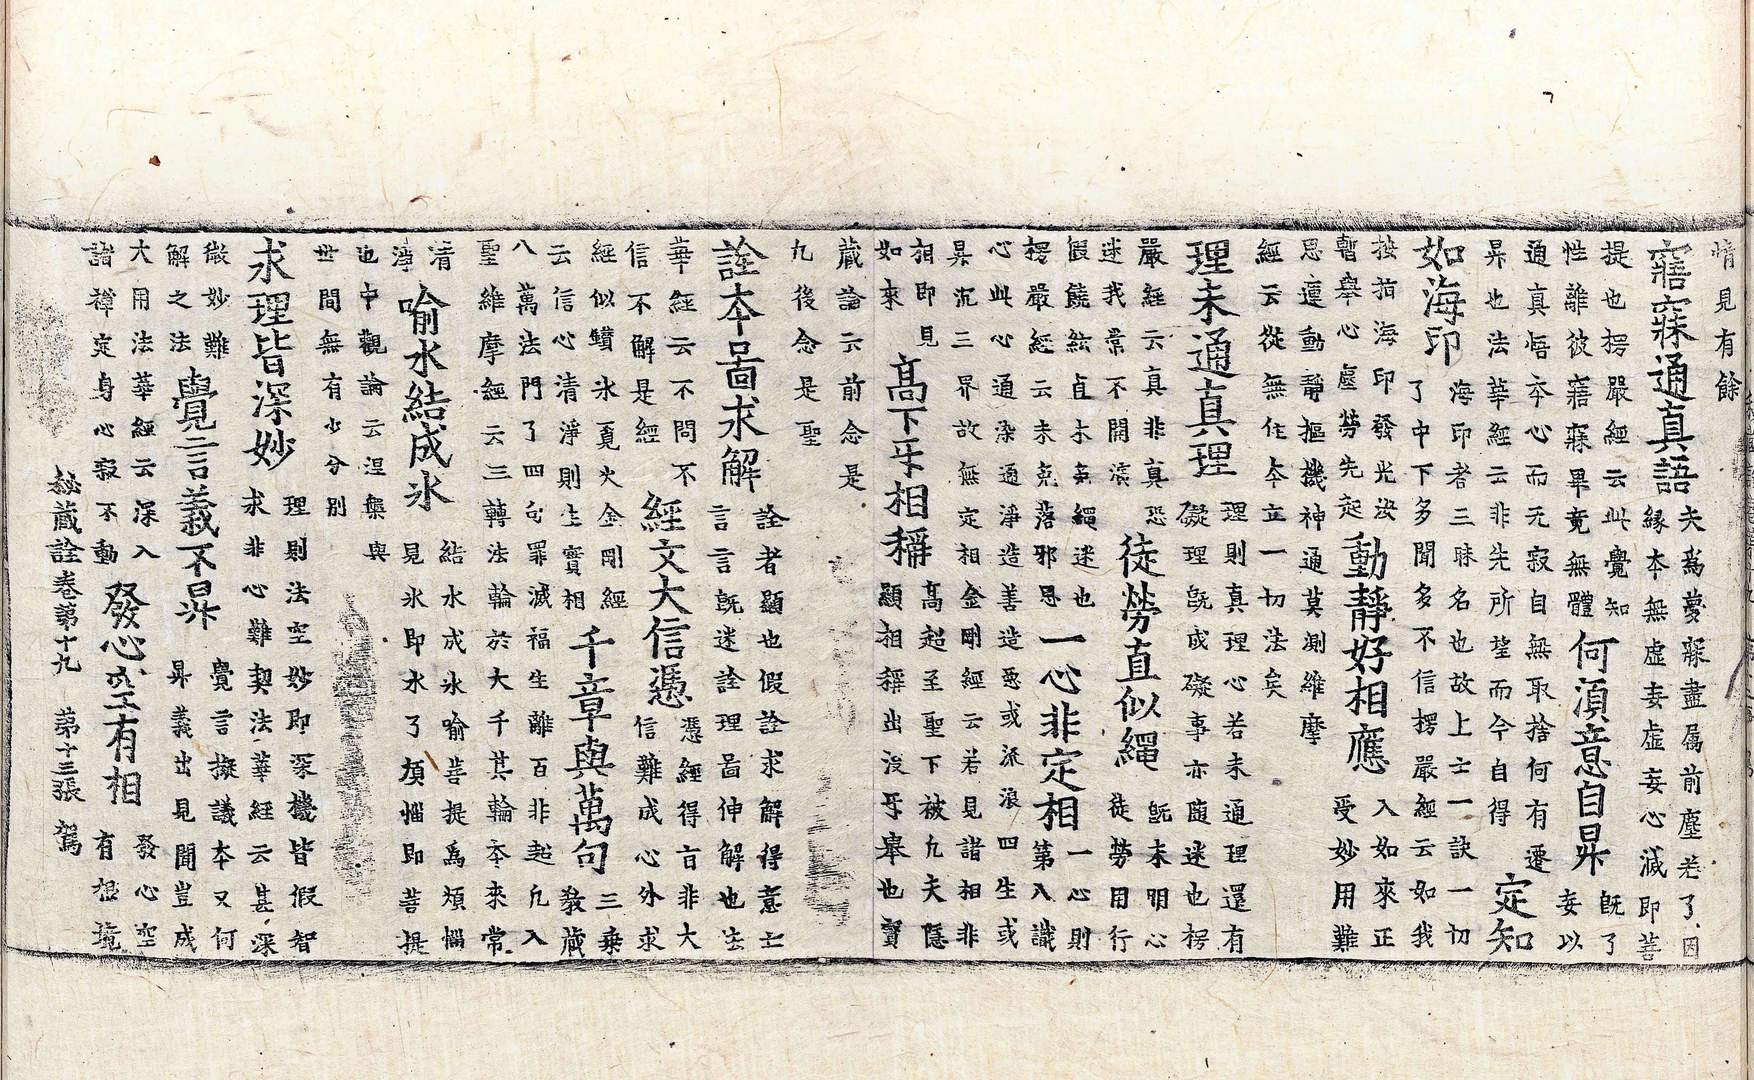 情見有餘
寤寐通真語
夫爲夢寐盡属前塵若了因
緣本無虛妄虛妄心滅即菩
提也楞嚴經云此覺知
性離彼寤寐畢竟無體
何須意自昇
既了
妄以
通真悟本心而无寂自無取捨何有遷
昇也法華經云非先所望而今自得
定知
如海印
海印者三昧名也故上士一訣一切
了中下多聞多不信楞嚴經云如我
按指海印發光汝
暫舉心塵勞先起
動靜好相應
入如來正
受妙用難
思運動靜樞機神通莫測維摩
經云從無住本立一切法矣
理未通真理
理則真理心若未通理還有
礙理既成礙事亦随迷也楞
嚴經云真非真恐
迷我常不開演
徒勞直似繩
既未明心
徒勞用行
假饒絃直木免繩迷也
楞嚴經云未免落邪思
一心非定相
一心則
第八識
心此心通染通淨造善造惡或派浪四生或
昇沉三界故無定相金剛經云若見諸相非
相即見
如來
高下牙相稱
高超至聖下被凡夫隱
顯相稱出沒牙舉也寶
藏論云前念是
凡後念是聖
詮本啚求解
詮者顯也假詮求解得意亡
言言既迷詮理啚伸解也法
華經云不問不
信不解是經
經文大信憑
憑經得旨非大
信難成心外求
經似鑚氷覓火金剛經
云信心清淨則生實相
千章與萬句
三乗
教藏
八萬法門了四句罪滅福生離百非超凡入
聖維摩經云三轉法輪於大千其輪本來常
清
淨
喻水結成氷
結水成氷喻菩提爲煩惱
見氷即水了煩惱即菩提
也中觀論云涅槃與
世間無有少分別
求理皆深妙
理則法空妙即深機皆假智
求非心難契法華經云甚深
微妙難
解之法
覺言義不昇
覺言擬議本又何
昇義出見聞豈成
大用法華經云深入
諸禪定身心寂不動
發心空有相
發心空
有想境
秘藏詮卷第十九 第十三張 駕